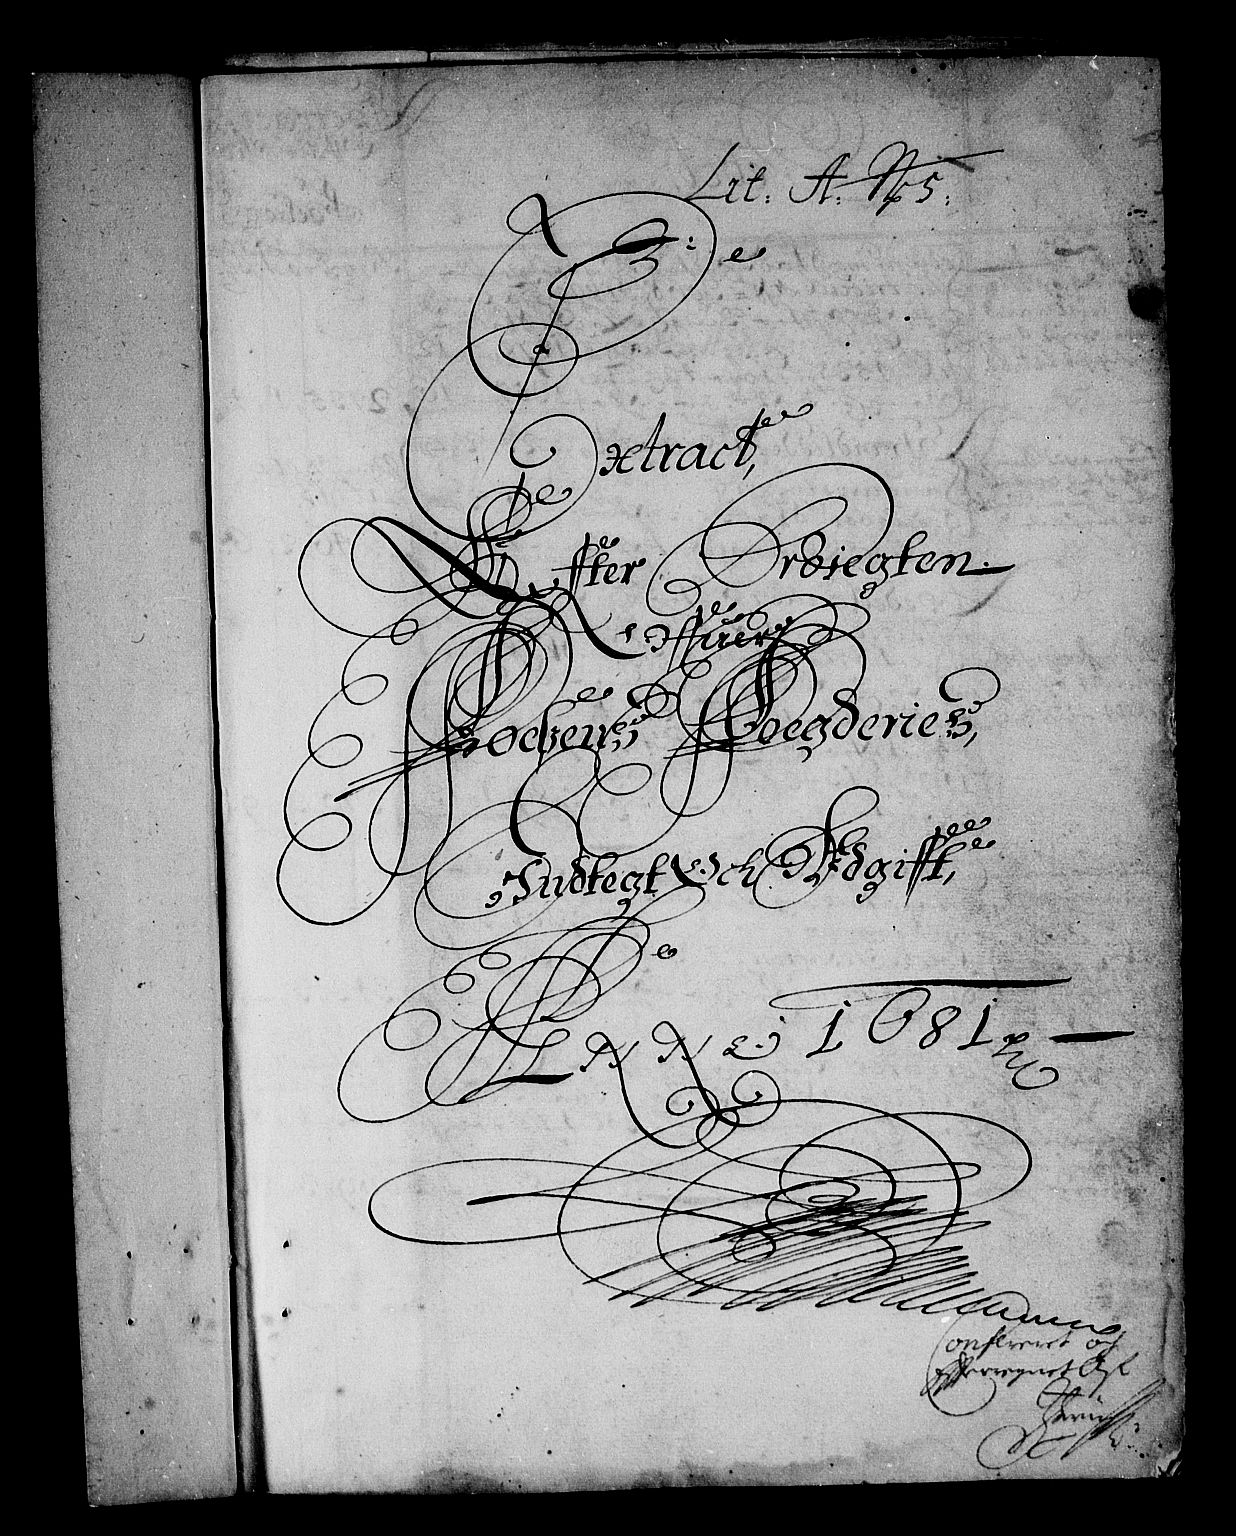 Lit. A. No 5.
Extract,
Effter Ordiegten
offuer
Fochens Foegderies,
Indtegt och Udgifft,
ANNO 1681
Confereret og
Effterregnet